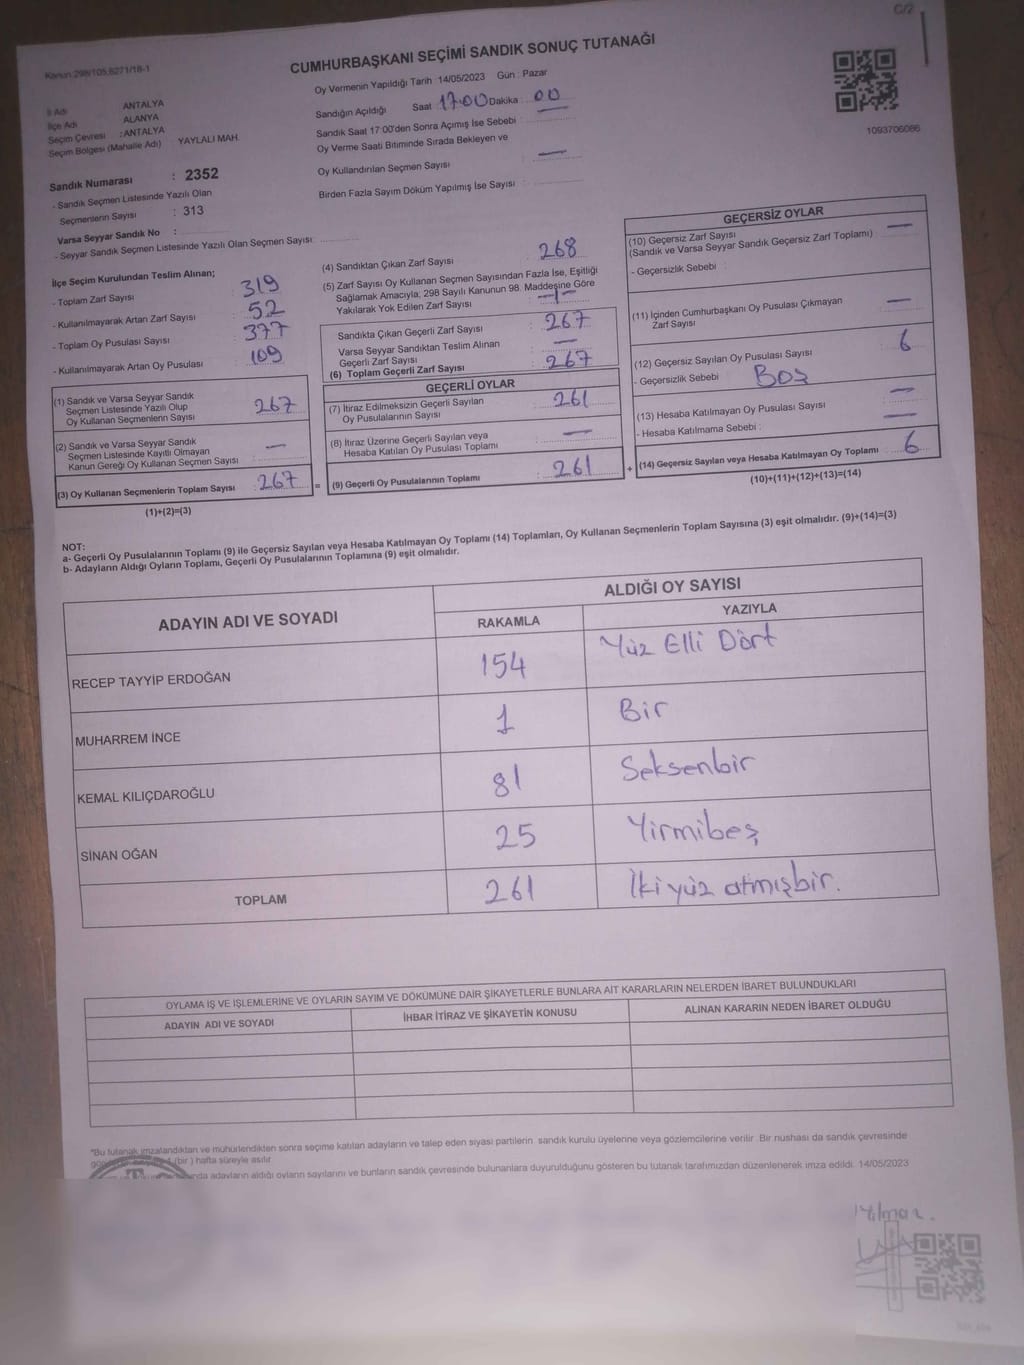 C/2
Kanun 298/105,6271/18-1
CUMHURBAŞKANI SEÇİMİ SANDIK SONUÇ TUTANAĞI
Oy Vermenin Yapıldığı Tarih : 14/05/2023 Gün : Pazar
İl Adı ANTALYA
İlçe Adı ALANYA
Seçim Çevresi : ANTALYA
Seçim Bölgesi (Mahalle Adı) YAYLALI MAH.
Sandığın Açıldığı Saat 17:00 Dakika : 00
Sandık Saat 17:00'den Sonra Açımış İse Sebebi :
Oy Verme Saati Bitiminde Sırada Bekleyen ve
Oy Kullandırılan Seçmen Sayısı : —
Birden Fazla Sayım Döküm Yapılmış İse Sayısı :
1093706086
Sandık Numarası : 2352
- Sandık Seçmen Listesinde Yazılı Olan
Seçmenlerin Sayısı : 313
Varsa Seyyar Sandık No :
- Seyyar Sandık Seçmen Listesinde Yazılı Olan Seçmen Sayısı:
İlçe Seçim Kurulundan Teslim Alınan;
- Toplam Zarf Sayısı : 319
- Kullanılmayarak Artan Zarf Sayısı : 52
- Toplam Oy Pusulası Sayısı : 377
- Kullanılmayarak Artan Oy Pusulası : 109
(1) Sandık ve Varsa Seyyar Sandık
Seçmen Listesinde Yazılı Olup
Oy Kullanan Seçmenlerin Sayısı : 267
(2) Sandık ve Varsa Seyyar Sandık
Seçmen Listesinde Kayıtlı Olmayan
Kanun Gereği Oy Kullanan Seçmen Sayısı : —
(3) Oy Kullanan Seçmenlerin Toplam Sayısı : 267 =
(1)+(2)=(3)
(4) Sandıktan Çıkan Zarf Sayısı : 268
(5) Zarf Sayısı Oy Kullanan Seçmen Sayısından Fazla İse, Eşitliği
Sağlamak Amacıyla, 298 Sayılı Kanunun 98. Maddesine Göre
Yakılarak Yok Edilen Zarf Sayısı : -1-
Sandıkta Çıkan Geçerli Zarf Sayısı : 267
Varsa Seyyar Sandıktan Teslim Alınan
Geçerli Zarf Sayısı : —
(6) Toplam Geçerli Zarf Sayısı : 267
GEÇERLİ OYLAR
(7) İtiraz Edilmeksizin Geçerli Sayılan
Oy Pusulalarının Sayısı : 261
(8) İtiraz Üzerine Geçerli Sayılan veya
Hesaba Katılan Oy Pusulası Toplamı : —
(9) Geçerli Oy Pusulalarının Toplamı : 261 +
GEÇERSİZ OYLAR
(10) Geçersiz Zarf Sayısı
(Sandık ve Varsa Seyyar Sandık Geçersiz Zarf Toplamı) : —
- Geçersizlik Sebebi :
(11) İçinden Cumhurbaşkanı Oy Pusulası Çıkmayan
Zarf Sayısı : —
(12) Geçersiz Sayılan Oy Pusulası Sayısı : 6
- Geçersizlik Sebebi : Boş
(13) Hesaba Katılmayan Oy Pusulası Sayısı : —
- Hesaba Katılmama Sebebi : —
(14) Geçersiz Sayılan veya Hesaba Katılmayan Oy Toplamı : 6
(10)+(11)+(12)+(13)=(14)
NOT:
a- Geçerli Oy Pusulalarının Toplamı (9) ile Geçersiz Sayılan veya Hesaba Katılmayan Oy Toplamı (14) Toplamları, Oy Kullanan Seçmenlerin Toplam Sayısına (3) eşit olmalıdır. (9)+(14)=(3)
b- Adayların Aldığı Oyların Toplamı, Geçerli Oy Pusulalarının Toplamına (9) eşit olmalıdır.
ADAYIN ADI VE SOYADI
ALDIĞI OY SAYISI
RAKAMLA YAZIYLA
RECEP TAYYİP ERDOĞAN 154 Yüz Elli Dört
MUHARREM İNCE 1 Bir
KEMAL KILIÇDAROĞLU 81 Seksenbir
SİNAN OĞAN 25 Yirmibeş
TOPLAM 261 İkiyüz atmışbir.
OYLAMA İŞ VE İŞLEMLERİNE VE OYLARIN SAYIM VE DÖKÜMÜNE DAİR ŞİKAYETLERLE BUNLARA AİT KARARLARIN NELERDEN İBARET BULUNDUKLARI
ADAYIN ADI VE SOYADI İHBAR İTİRAZ VE ŞİKAYETİN KONUSU ALINAN KARARIN NEDEN İBARET OLDUĞU
"Bu tutanak imzalandıktan ve mühürlendikten sonra seçime katılan adayların ve talep eden siyasi partilerin sandık kurulu üyelerine veya gözlemcilerine verilir. Bir nüshası da sandık çevresinde
(bir) hafta süreyle asılır.
adayların aldığı oyların sayılarını ve bunların sandık çevresinde bulunanlara duyurulduğunu gösteren bu tutanak tarafımızdan düzenlenerek imza edildi. 14/05/2023
Yılmaz.